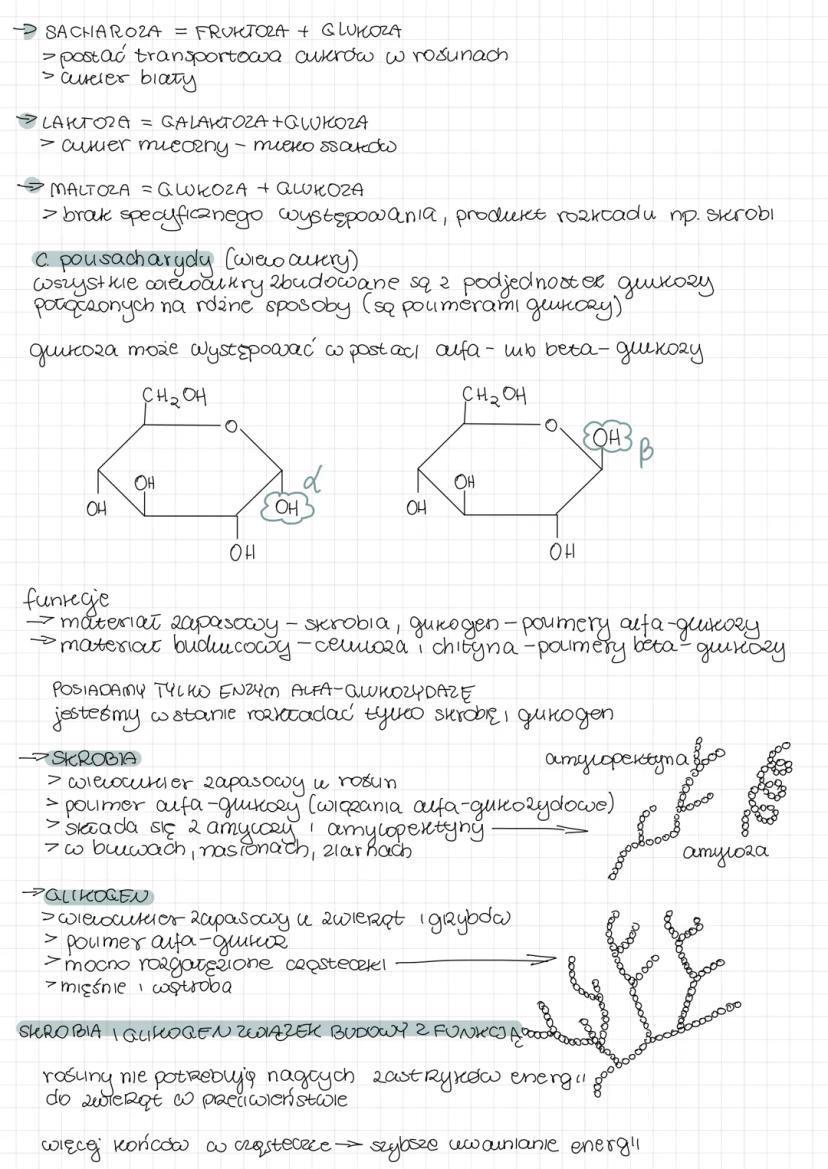 → SACHAROZA = FRUKTOZA + GLUKOZA
> postać transportowa cukrów w roślinach
> cukier biały
→ LAKTOZA = GALAKTOZA + GLUKOZA
> cukier mleczny – mleko ssaków
→ MALTOZA = GLUKOZA + GLUKOZA
> brak specyficznego występowania, produkt rozkładu np. skrobi
c. polisacharydy (wielocukry)
wszystkie wielocukry zbudowane są z podjednostek glukozy
połączonych na różne sposoby (są polimerami glukozy)
glukoza może występować w postaci alfa- lub beta-glukozy
CH₂OH CH₂OH
O O OH β
OH α OH
OH OH OH
OH OH
funkcje
→ materiał zapasowy – skrobia, glikogen – polimery alfa-glukozy
→ materiał budulcowy – celuloza i chityna – polimery beta-glukozy
POSIADAMY TYLKO ENZYM ALFA-GLUKOZYDAZĘ
jesteśmy w stanie rozkładać tylko skrobię i glikogen
→ SKROBIA
amylopektyna
> wielocukier zapasowy u roślin
> polimer alfa-glukozy (wiązania alfa-glikozydowe)
> składa się z amylozy i amylopektyny
> w bulwach, nasionach, ziarnach
amyloza
→ GLIKOGEN
> wielocukier zapasowy u zwierząt i grzybów
> polimer alfa-glukoz
> mocno rozgałęzione cząsteczki
> mięśnie i wątroba
SKROBIA I GLIKOGEN ZWIĄZEK BUDOWY Z FUNKCJĄ
rośliny nie potrzebują nagłych zastrzyków energii
do zwierząt w przeciwieństwie
więcej końców w cząsteczce → szybsze uwalnianie energii